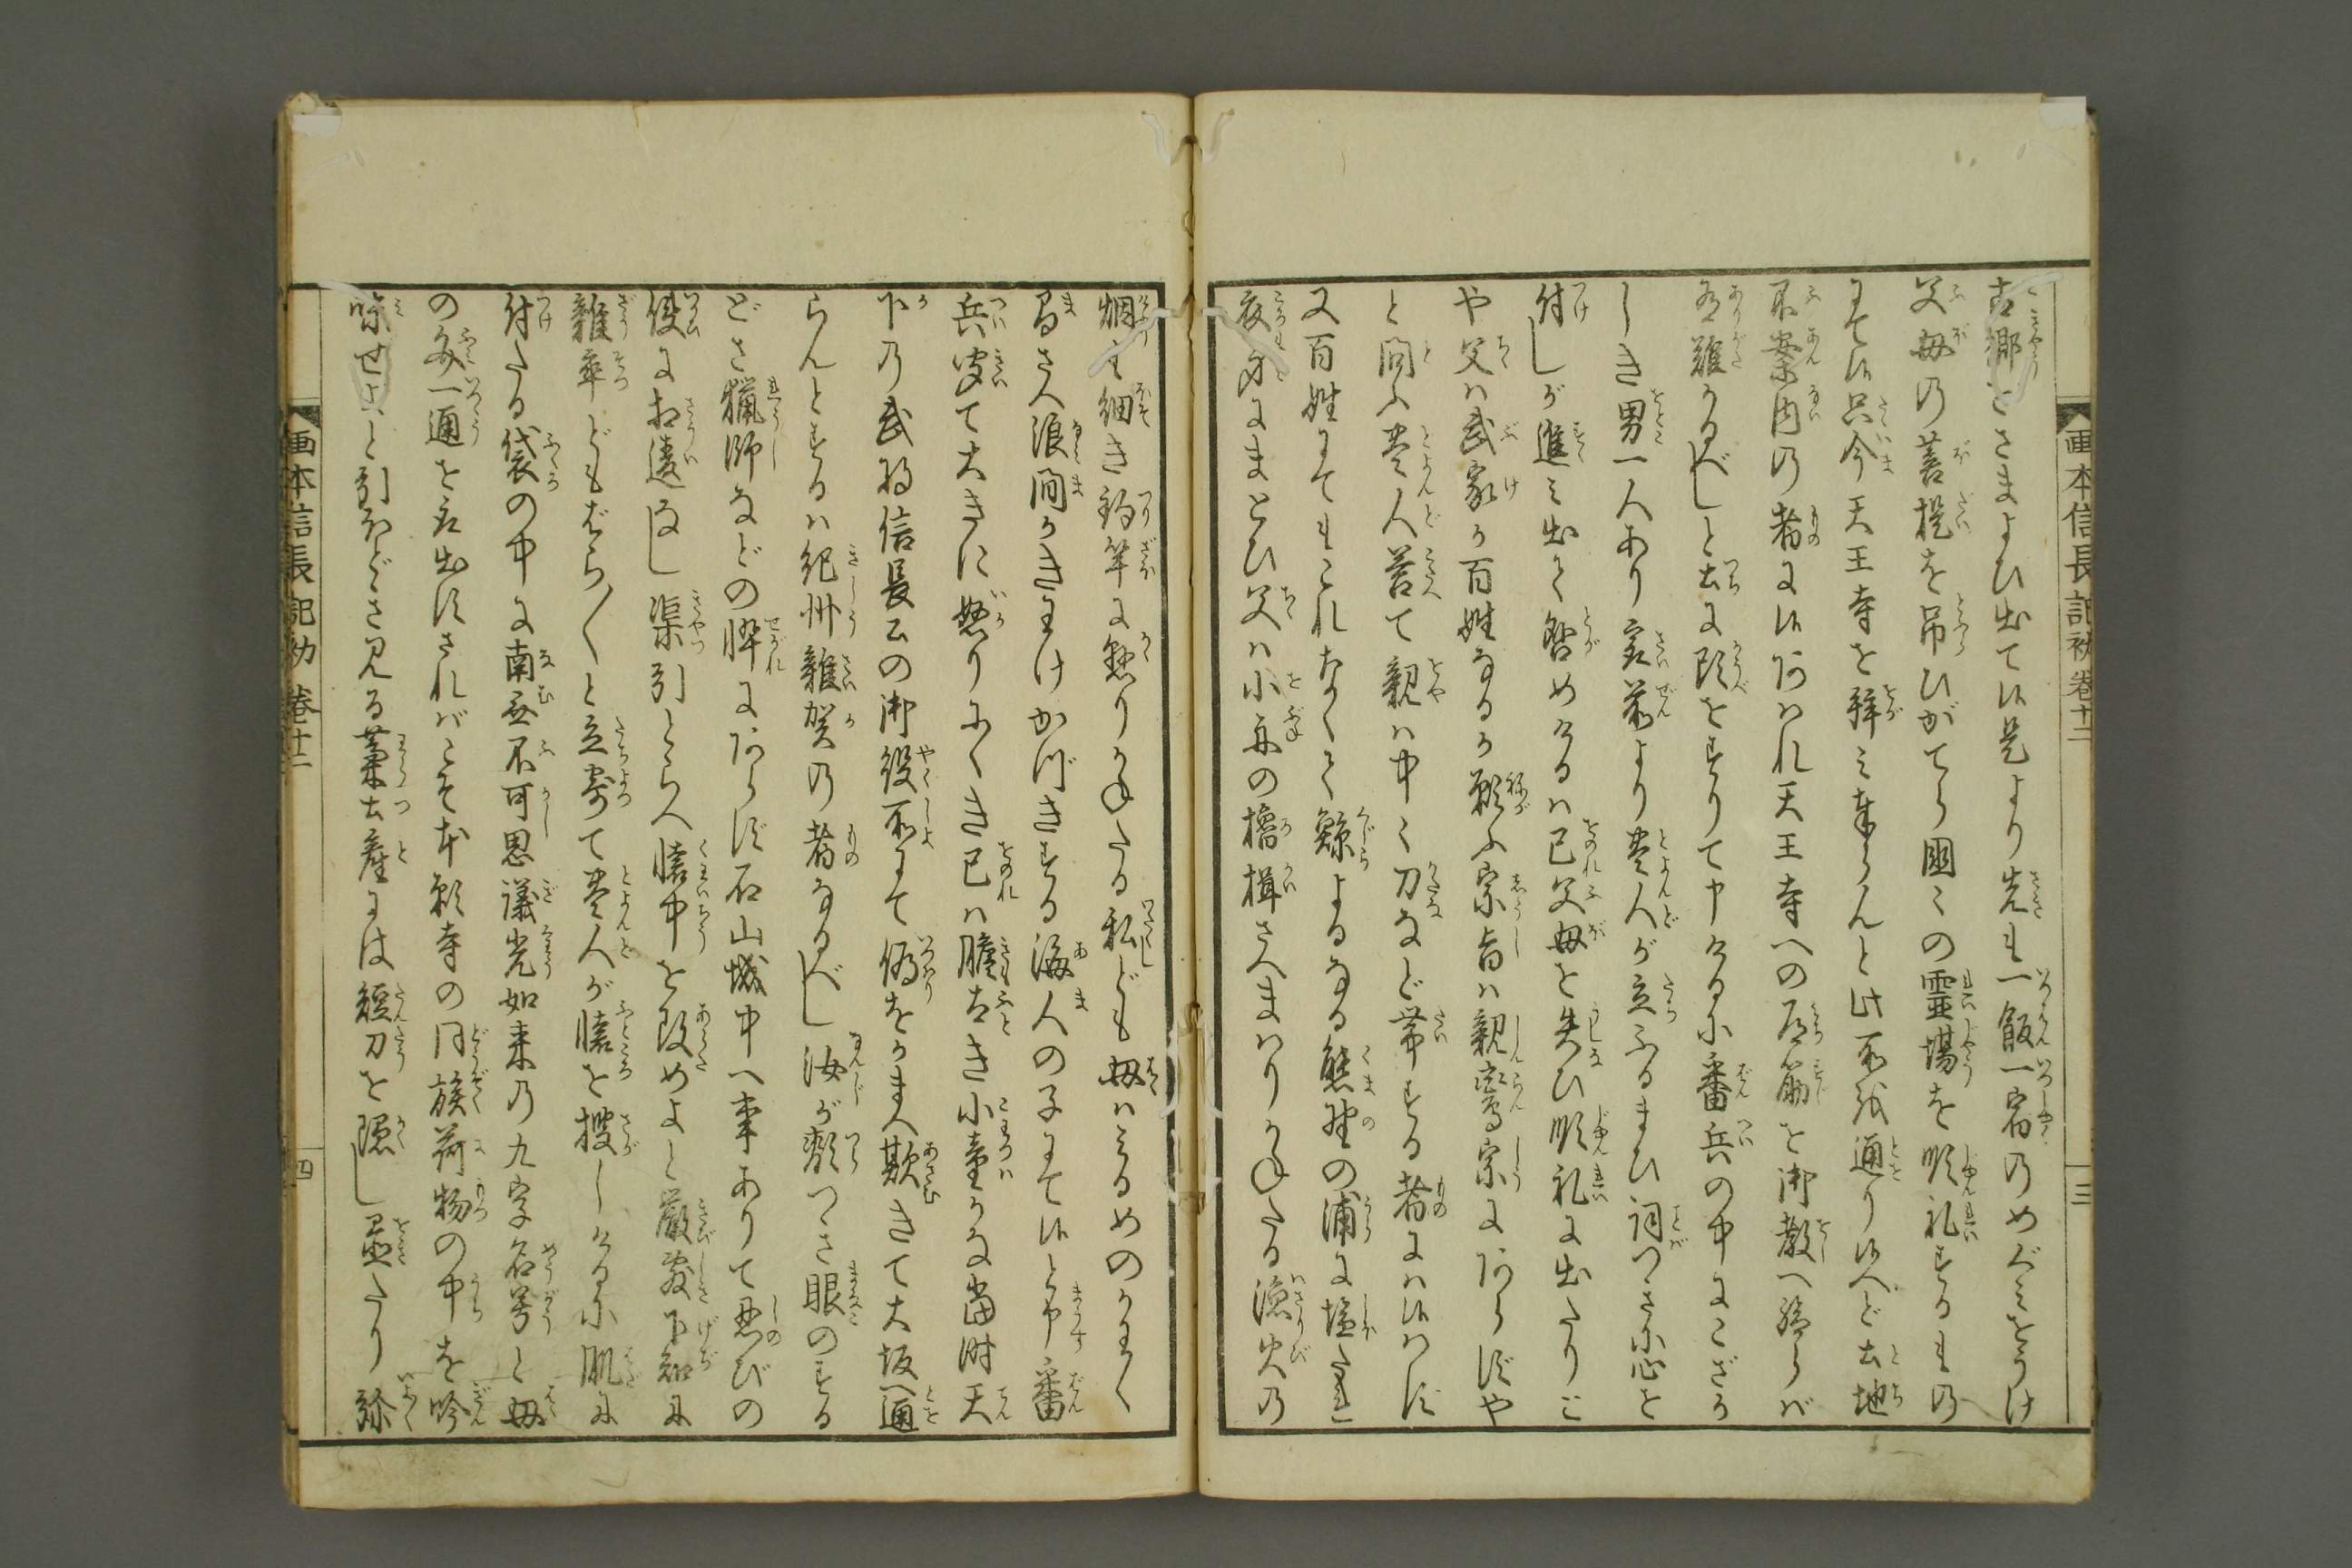 画本信長記初 卷十二
三
古郷をさまよひ出て候是より先も一飯一宿のめぐみをうけ
父母の菩提を吊ひがてら国〻の霊場を順礼するもの
にて候只今天王寺を拝み奉らんと此所を通り候へど土地
不案内の者に候あはれ天王寺への道筋を御教へ給らば
有難かるべしと土に頭をすりて申けるに番兵の中にこざか
しき男一人あり最前より豊人が立ふるまひ詞つきに心を
付しが進み出て咎めけるは己父母を失ひ順礼に出たりと
や父は武家か百姓なるか願ふ宗旨は親鸞宗にあらずや
と問ふ豊人答て親は中〻刀など帯する者には候はず
又百姓にてもこれなくて鯨よるなる熊野の浦に塩たれ
衣身にまとひ父は小舟の櫓楫さへまはりかねたる漁火の
烟も細き釣竿に懸りかねたる私ども母はみるめのかる〱
るさへ浪間かきわけかづきする海人の子にて候と申番
兵聞て大きに怒りにくき己は膽太き小童かな当時天
下の武将信長公の御役所にて偽をかまへ欺きて大坂へ通
らんとするは紀州雑賀の者なるべし汝が顔つき眼のする
どさ猟師などの悴にあらず石山城中へ事ありて忍びの
使に相違なし渠引とらへ懐中を改めよと厳敷下知に
雑卒どもばら〱と立寄て豊人が懐を捜しけるに肌に
付たる袋の中に南無不可思議光如来の九字名号と母
の文一通を取出すさればこそ本願寺の同族荷物の中を吟
味せよと引ほどき見る藁土産には短刀を隠し置たり弥
画本信長記初 卷十二
四